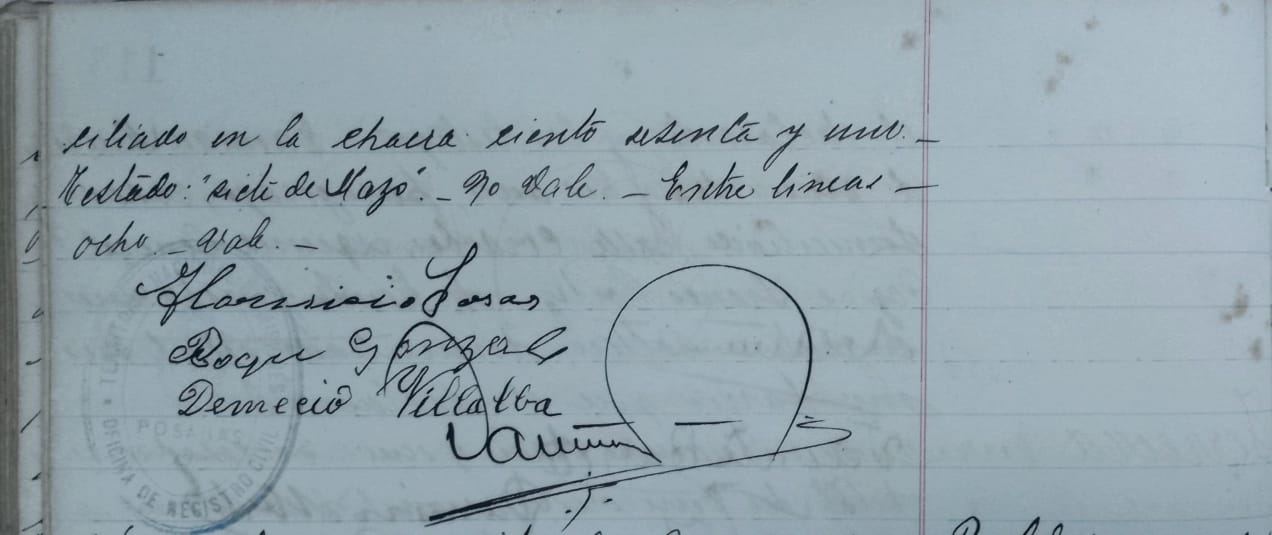 ciliado en la chacra ciento sesenta y uno.—
Testado: "siete de Mayo".— No Vale.— Entre lineas—
ocho — Vale.—
Florisicio Sosas
Roque Gonzalez
Demecio Villalba
POSADAS
OFICINA DE REGISTRO CIVIL